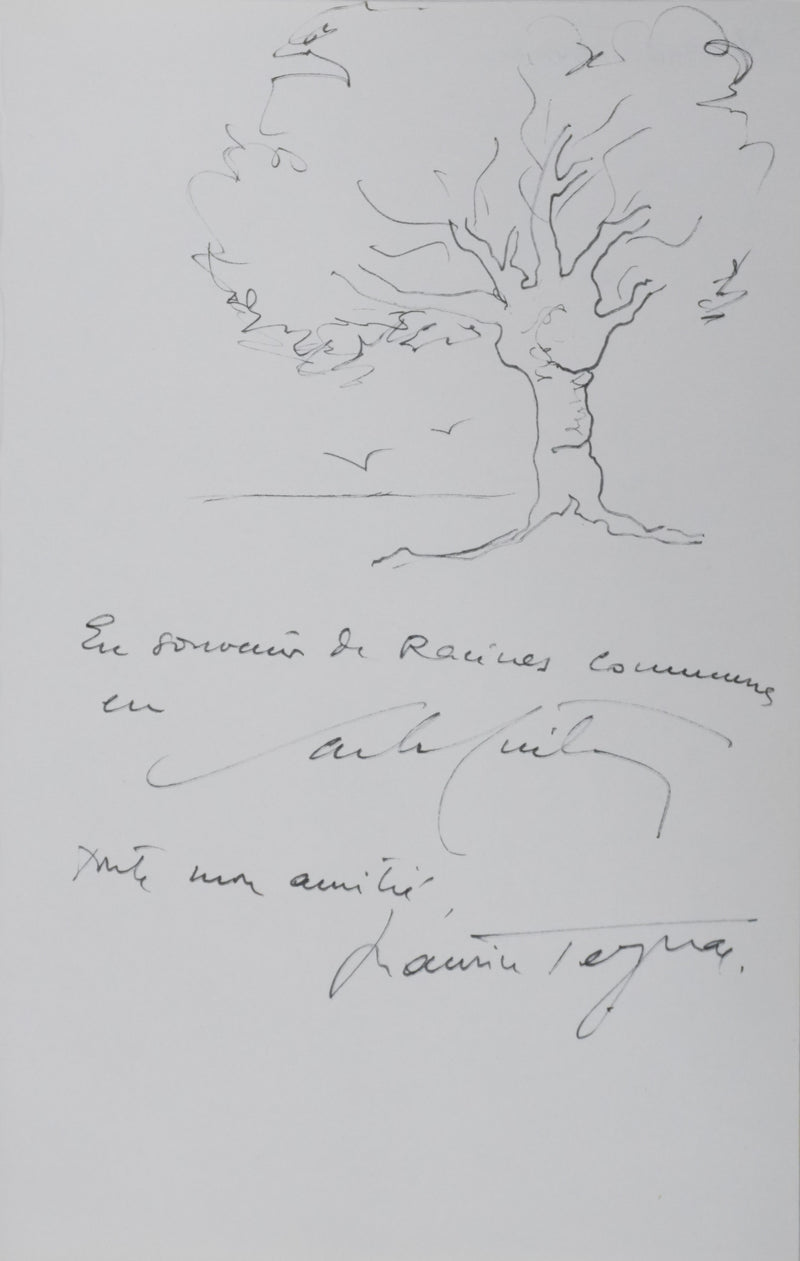 En souvenir de Racines communes
en Sacha Guitry
toute mon amitié,
Maurice Teynac.